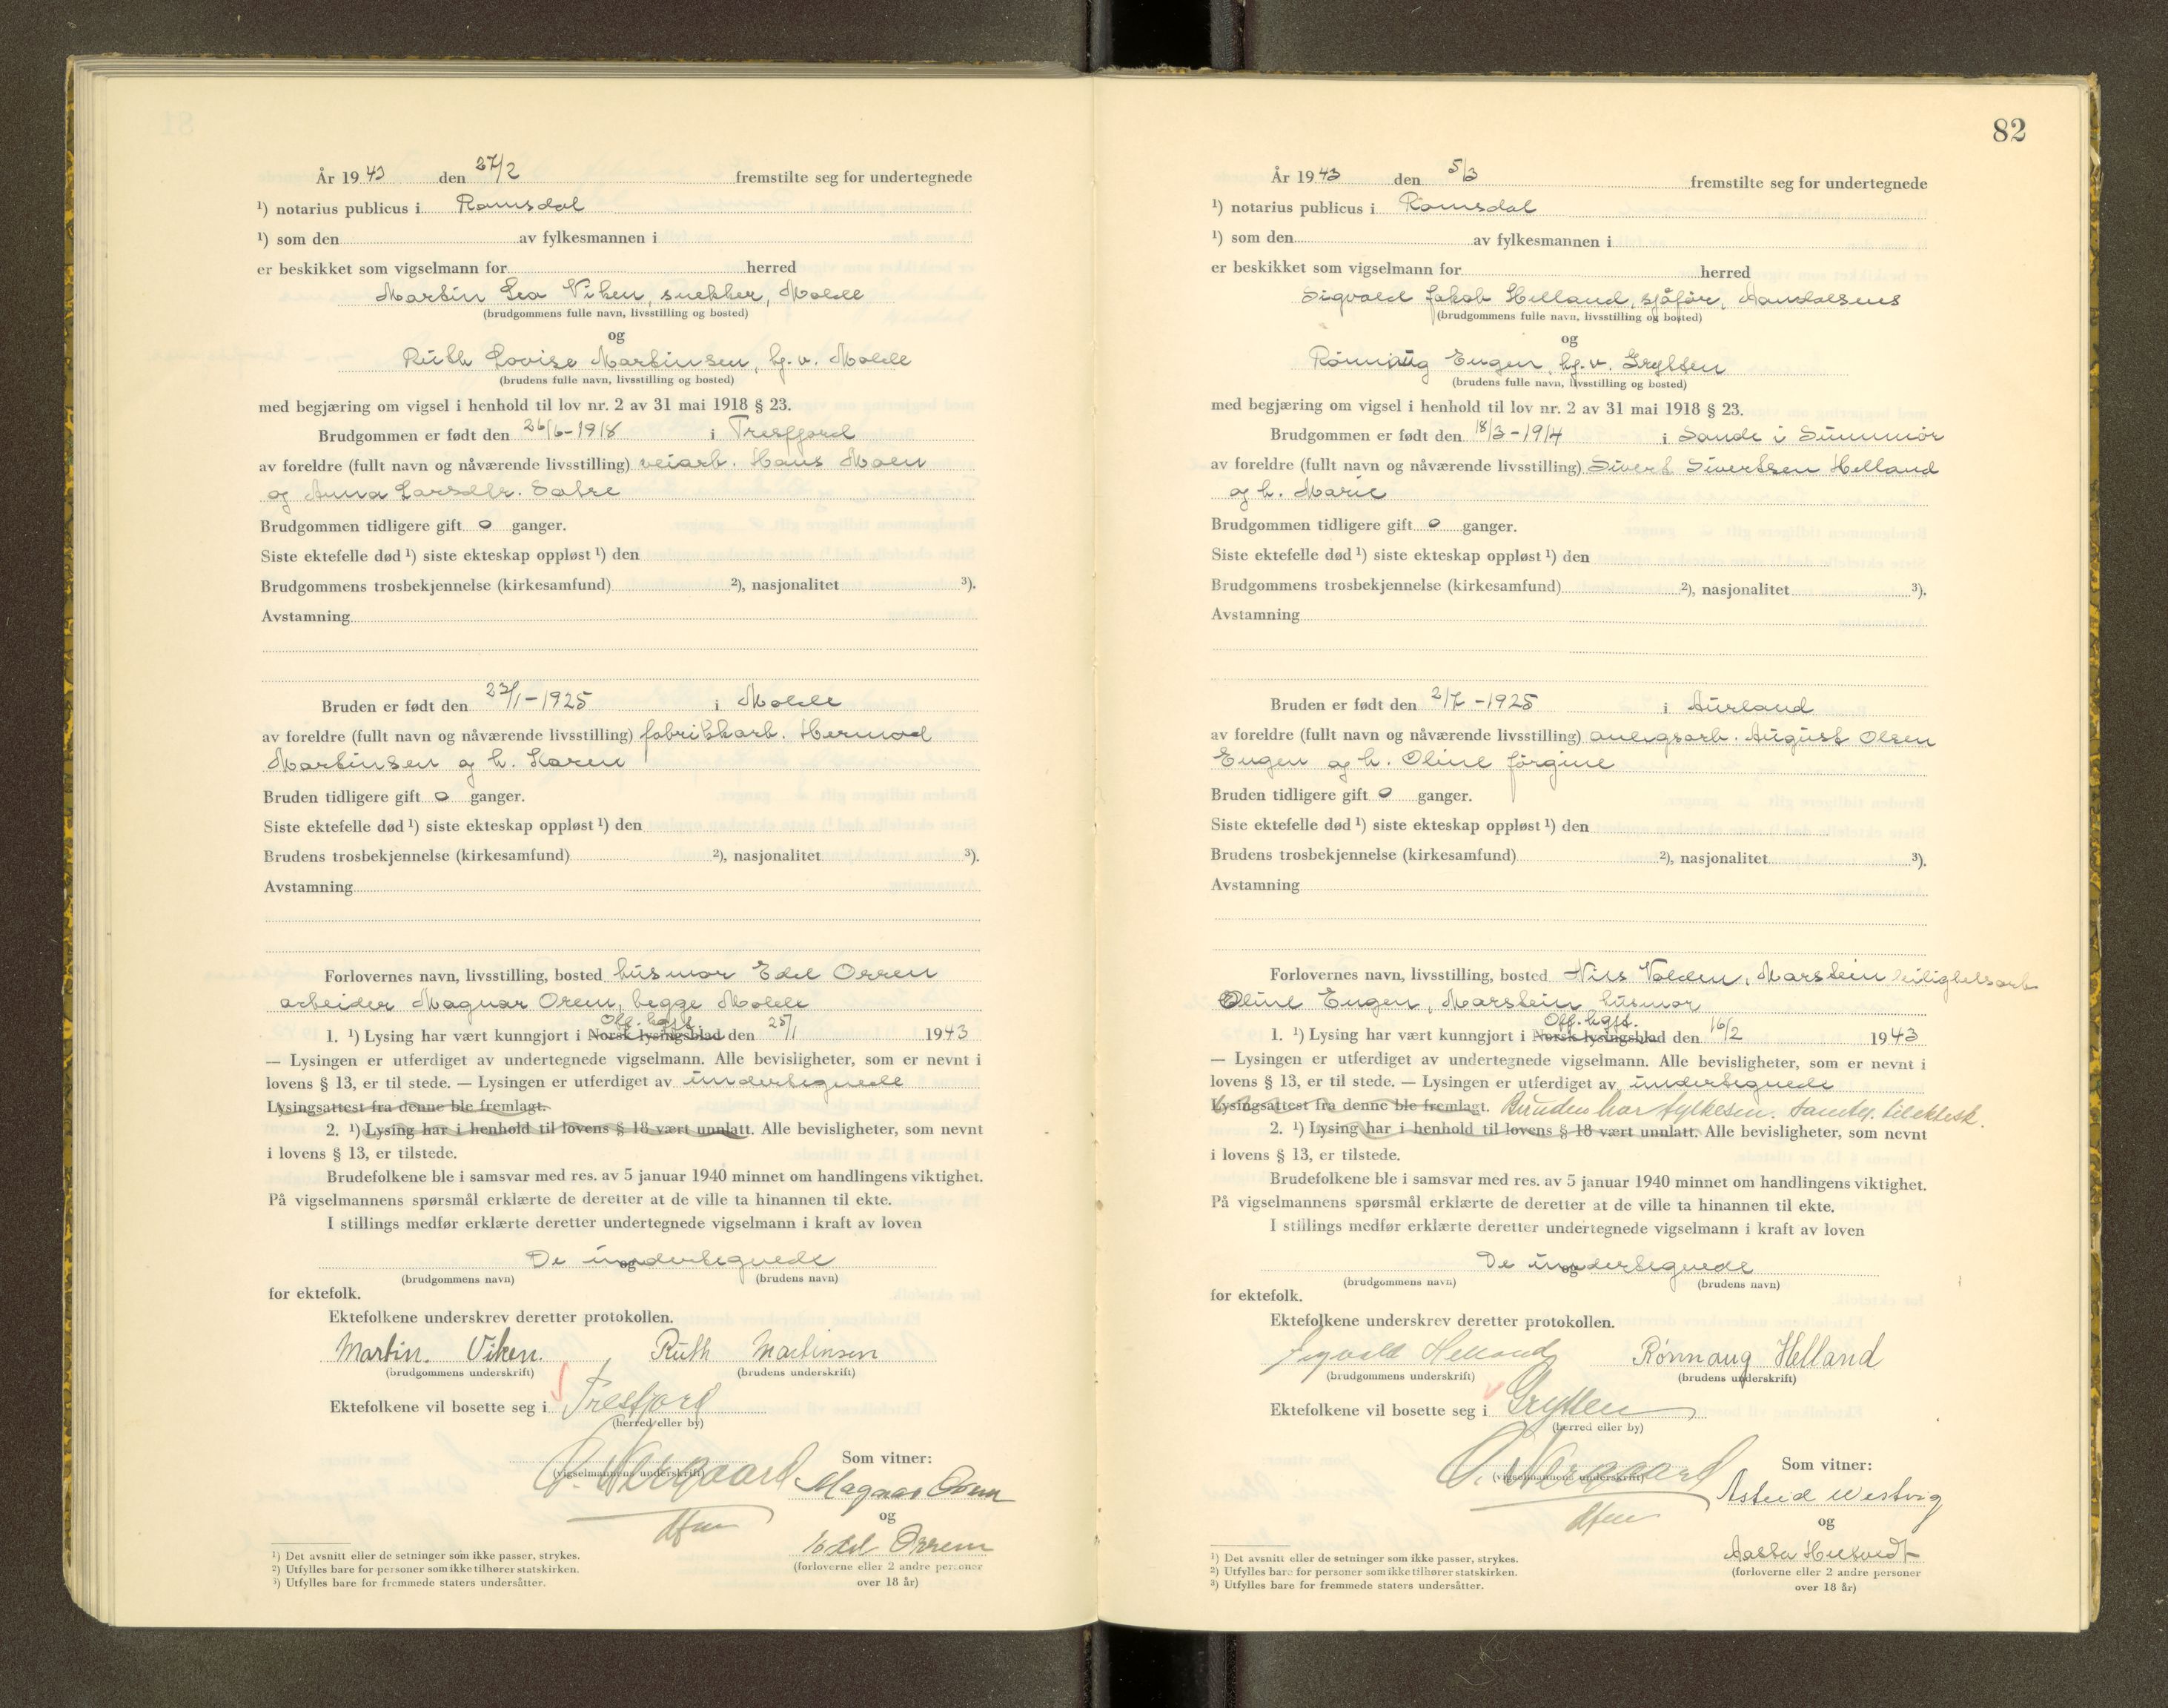 År 1943 den 27/2 fremstilte seg for undertegnede
¹) notarius publicus i Romsdal
¹) som den av fylkesmannen i
er beskikket som vigselmann for herred
Martin Lea Viken, snekker, Molde
(brudgommens fulle navn, livsstilling og bosted)
og
Ruth Lovise Martinsen, hj.v. Molde
(brudens fulle navn, livsstilling og bosted)
med begjæring om vigsel i henhold til lov nr. 2 av 31 mai 1918 § 23.
Brudgommen er født den 26/6-1918 i Tresfjord
av foreldre (fullt navn og nåværende livsstilling) veiarb. Hans Moen
og Anna Larsdtr. Satre
Brudgommen tidligere gift 0 ganger.
Siste ektefelle død ¹) siste ekteskap oppløst ¹) den
Brudgommens trosbekjennelse (kirkesamfund) ²), nasjonalitet ³).
Avstamning
Bruden er født den 23/1-1925 i Molde
av foreldre (fullt navn og nåværende livsstilling) fabrikkarb. Hermod
Martinsen og h. Karen
Bruden tidligere gift 0 ganger.
Siste ektefelle død ¹) siste ekteskap oppløst ¹) den
Brudens trosbekjennelse (kirkesamfund) ²), nasjonalitet ³).
Avstamning
Forlovernes navn, livsstilling, bosted husmor Edel Orren
arbeider Magnar Orem, begge Molde
Off. kgjt.
1. ¹) Lysing har vært kunngjort i Norsk lysingsblad den 25/1 1943
— Lysingen er utferdiget av undertegnede vigselmann. Alle bevisligheter, som er nevnt i
lovens § 13, er til stede. — Lysingen er utferdiget av undertegnede
Lysingsattest fra denne ble fremlagt.
2. ¹) Lysing har i henhold til lovens § 18 vært unnlatt. Alle bevisligheter, som nevnt
i lovens § 13, er tilstede.
Brudefolkene ble i samsvar med res. av 5 januar 1940 minnet om handlingens viktighet.
På vigselmannens spørsmål erklærte de deretter at de ville ta hinannen til ekte.
I stillings medfør erklærte deretter undertegnede vigselmann i kraft av loven
De undertegnede
og
(brudgommens navn) (brudens navn)
for ektefolk.
Ektefolkene underskrev deretter protokollen.
Martin. Viken. Ruth Martinsen
(brudgommens underskrift) (brudens underskrift)
Ektefolkene vil bosette seg i Tresfjord
(herred eller by)
Som vitner:
(vigselmannens underskrift)
Magnar Orem
og
Edel Orrem
(forloverne eller 2 andre personer
over 18 år)
¹) Det avsnitt eller de setninger som ikke passer, strykes.
²) Utfylles bare for personer som ikke tilhører statskirken.
³) Utfylles bare for fremmede staters undersåtter.
82
År 1943 den 5/3 fremstilte seg for undertegnede
¹) notarius publicus i Romsdal
¹) som den av fylkesmannen i
er beskikket som vigselmann for herred
Sigvald Jakob Helland, sjåfør, Aandalsnes
(brudgommens fulle navn, livsstilling og bosted)
og
Rønnaug Eugen, hj.v. Grytten
(brudens fulle navn, livsstilling og bosted)
med begjæring om vigsel i henhold til lov nr. 2 av 31 mai 1918 § 23.
Brudgommen er født den 18/3-1914 i Sande i Sunnmør
av foreldre (fullt navn og nåværende livsstilling) Sivert Sivertsen Helland
og h. Marie
Brudgommen tidligere gift 0 ganger.
Siste ektefelle død ¹) siste ekteskap oppløst ¹) den
Brudgommens trosbekjennelse (kirkesamfund) ²), nasjonalitet ³).
Avstamning
Bruden er født den 2/7-1925 i Aurland
av foreldre (fullt navn og nåværende livsstilling) anlegsarb. August Olsen
Eugen og h. Oline Jørgine
Bruden tidligere gift 0 ganger.
Siste ektefelle død ¹) siste ekteskap oppløst ¹) den
Brudens trosbekjennelse (kirkesamfund) ²), nasjonalitet ³).
Avstamning
Forlovernes navn, livsstilling, bosted Nils Volden, Marstein leilighetsarb
Oline Eugen, Marstein husmor
Off. kgjt.
1. ¹) Lysing har vært kunngjort i Norsk lysingsblad den 16/2 1943
— Lysingen er utferdiget av undertegnede vigselmann. Alle bevisligheter, som er nevnt i
lovens § 13, er til stede. — Lysingen er utferdiget av undertegnede
Lysingsattest fra denne ble fremlagt. Bruden har fylkesm. samty. til ektesk.
2. ¹) Lysing har i henhold til lovens § 18 vært unnlatt. Alle bevisligheter, som nevnt
i lovens § 13, er tilstede.
Brudefolkene ble i samsvar med res. av 5 januar 1940 minnet om handlingens viktighet.
På vigselmannens spørsmål erklærte de deretter at de ville ta hinannen til ekte.
I stillings medfør erklærte deretter undertegnede vigselmann i kraft av loven
De undertegnede
og
(brudgommens navn) (brudens navn)
for ektefolk.
Ektefolkene underskrev deretter protokollen.
Sigvald Helland Rønnaug Helland
(brudgommens underskrift) (brudens underskrift)
Ektefolkene vil bosette seg i Grytten
(herred eller by)
Som vitner:
(vigselmannens underskrift)
Astrid Westvig
og
Aasta
(forloverne eller 2 andre personer
over 18 år)
¹) Det avsnitt eller de setninger som ikke passer, strykes.
²) Utfylles bare for personer som ikke tilhører statskirken.
³) Utfylles bare for fremmede staters undersåtter.